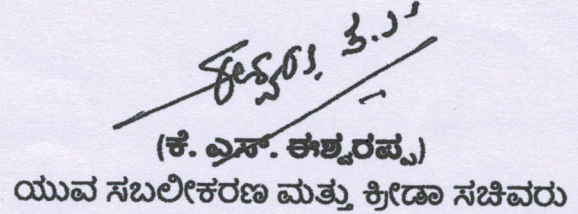 (ಕೆ. ಎಸ್. ಈಶ್ವರಪ್ಪ)
ಯುವ ಸಬಲೀಕರಣ ಮತ್ತು ಕ್ರೀಡಾ ಸಚಿವರು